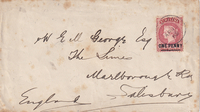 ONE PENNY
W. E. M. George Esq
The Limes
Marlborough Rd
Salisbury
England